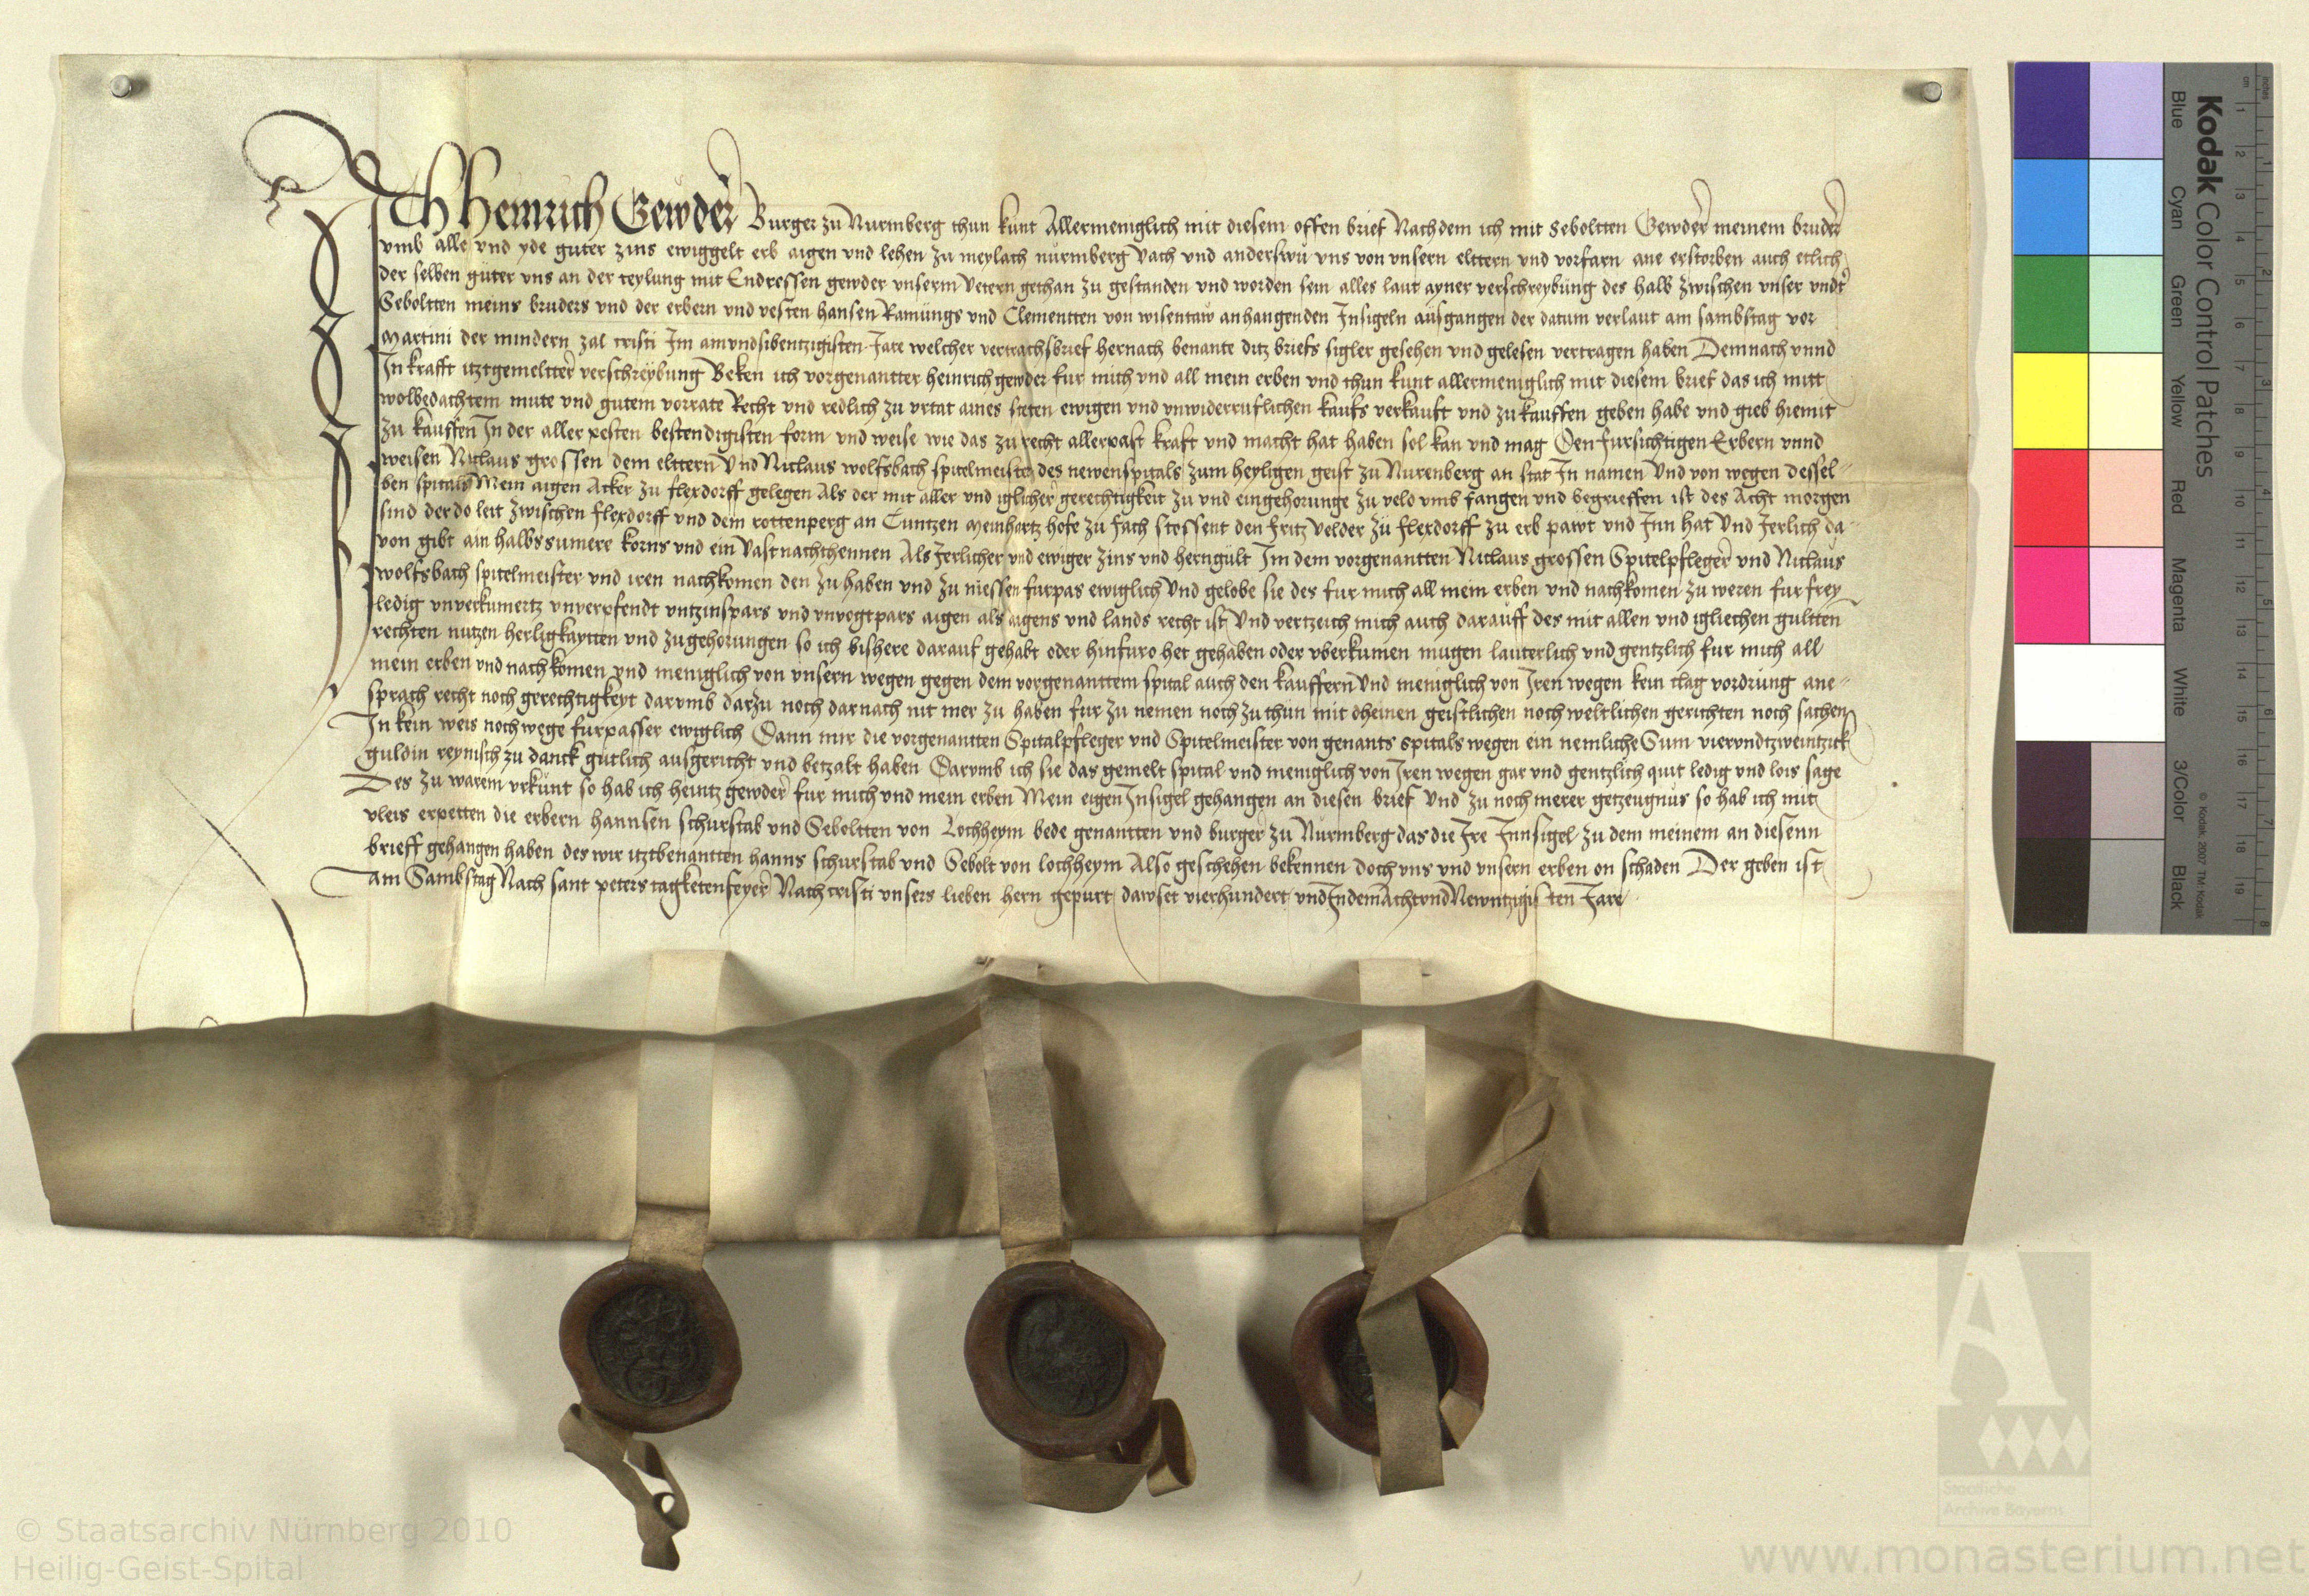 Ich Heinrich Gewder Burger zu Nurmberg thun kunt Allermeniglich mit diesem offen brief Nachdem ich mit Seboltten Gewder meinem bruder
vmb alle vnd yde guter zins ewiggelt erb aigen vnd lehen zu meylach nurmberg Vach vnd anderswu vns von vnsern elttern vnd vorfarn ane erstorben auch etlich
der selben guter vns an der teylung mit Endressen gewder vnserm Vetern gethan zu gestanden vnd worden sein alles laut ayner verschreybung des halb zwischen vnser vnder
Seboltten meins bruders vnd der erbern vnd vesten hansen Ramungs vnd Clementten von wisentaw anhangenden Insigeln ausgangen der datum verlaut am sambstag vor
Martini der mindern zal cristi Im ainvndsibentzigisten Jare welcher vertrachsbrief hernach benante ditz briefs sigler gesehen vnd gelesen vertragen haben Demnach vnnd
In krafft itztgemeltter verschreybung Beken ich vorgenantter heinrich gewder fur mich vnd all mein erben vnd thun kunt allermeniglich mit diesem brief das ich mitt
wolbedachtem mute vnd gutem vorrate Recht vnd redlich zu vrtat aines steten ewigen vnd vnwiderruflichen kaufs verkauft vnd zu kauffen geben habe vnd gieb hiemit
zu kauffen In der aller pesten bestendigisten form vnd weise wie das zu recht allerpast kraft vnd macht hat haben sol kan vnd mag Den fursichtigen Erbern vnnd
weisen Niclaus grossen dem elttern Vnd Niclaus wolfsbach spitelmeister des newenspitals zum heyligen geist zu Nurenberg an stat In namen Vnd von wegen dessel-
ben spitals Mein aigen Acker zu flexdorff gelegen Als der mit aller vnd iglicher gerechtigkeit zu vnd eingehorunge zu veld vmb fangen vnd begrieffen ist des Acht morgen
sind der do leit zwischen flexdorff vnd dem rottenperg an Cuntzen Meinhartz hofe zu fach stossent den fritz Velder zu flexdorff zu erb pawt vnd Inn hat Vnd Jerlich da-
von gibt ain halbs sumere korns vnd ein Vastnachthennen Als Jerlicher vnd ewiger zins vnd herngult Im dem vorgenantten Niclaus grossen Spitelpfleger vnd Niclaus
wolfsbach spitelmeister vnd iren nachkomen den zu haben vnd zu niessen furpas ewiglich Vnd gelobe sie des fur mich all mein erben vnd nachkomen zu weren fur frey
ledig vnverkumertz vnverpfendt vntzinspars vnd vnvogtpars aigen als aigens vnd lands recht ist Vnd vertzeich mich auch darauff des mit allen vnd igliechen gultten
rechten nutzen herligkaytten vnd zugehorungen so ich bishere darauf gehabt oder hinfuro het gehaben oder vberkumen mugen lauterlich vnd gentzlich fur mich all
mein erben vnd nachkomen vnd meniglich von vnsern wegen gegen dem vorgenanttem spital auch den kauffern Vnd meniglich von Iren wegen kein clag vordrung ane-
sprach recht noch gerechtigkeyt darvmb darzu noch darnach nit mer zu haben fur zu nemen noch zu thun mit dheinen geistlichen noch weltlichen gerichten noch sachen
In kein weis noch wege furpasser ewiglich Dann mir die vorgenantten Spitalpfleger vnd Spitelmeister von genants spitals wegen ein nemliche Sum viervndtzweintzick
guldin reynisch zu danck gutlich ausgericht vnd betzalt haben Darvmb ich sie das gemelt spital vnd meniglich von Iren wegen gar vnd gentzlich quit ledig vnd lois sage
Des zu warem vrkunt so hab ich heintz gewder fur mich vnd mein erben Mein eigen Insigel gehangen an diesen brief Vnd zu noch merer getzeugnus so hab ich mit
vleis erpetten die erbern hannsen schurstab vnd Seboltten von Lochheym bede genantten vnd burger zu Nurmberg das die Ire Innsigel zu dem meinem an diesenn
brieff gehangen haben des wir itztbenantten hanns schurstab vnd Sebolt von lochheym Also geschehen bekennen doch vns vnd vnsern erben on schaden Der geben ist
Am Sambstag Nach sant peters tag ketenfeyer Nach cristi vnsers lieben hern gepurt dawset vierhundert vnd In dem Acht vnd Newntzigisten Jare
Kodak Color Control Patches
Blue Cyan Green Yellow Red Magenta White 3/Color Black
© Kodak, 2007 TM: Kodak
© Staatsarchiv Nürnberg 2010
Heilig-Geist-Spital
Staatliche
Archive Bayerns
www.monasterium.net